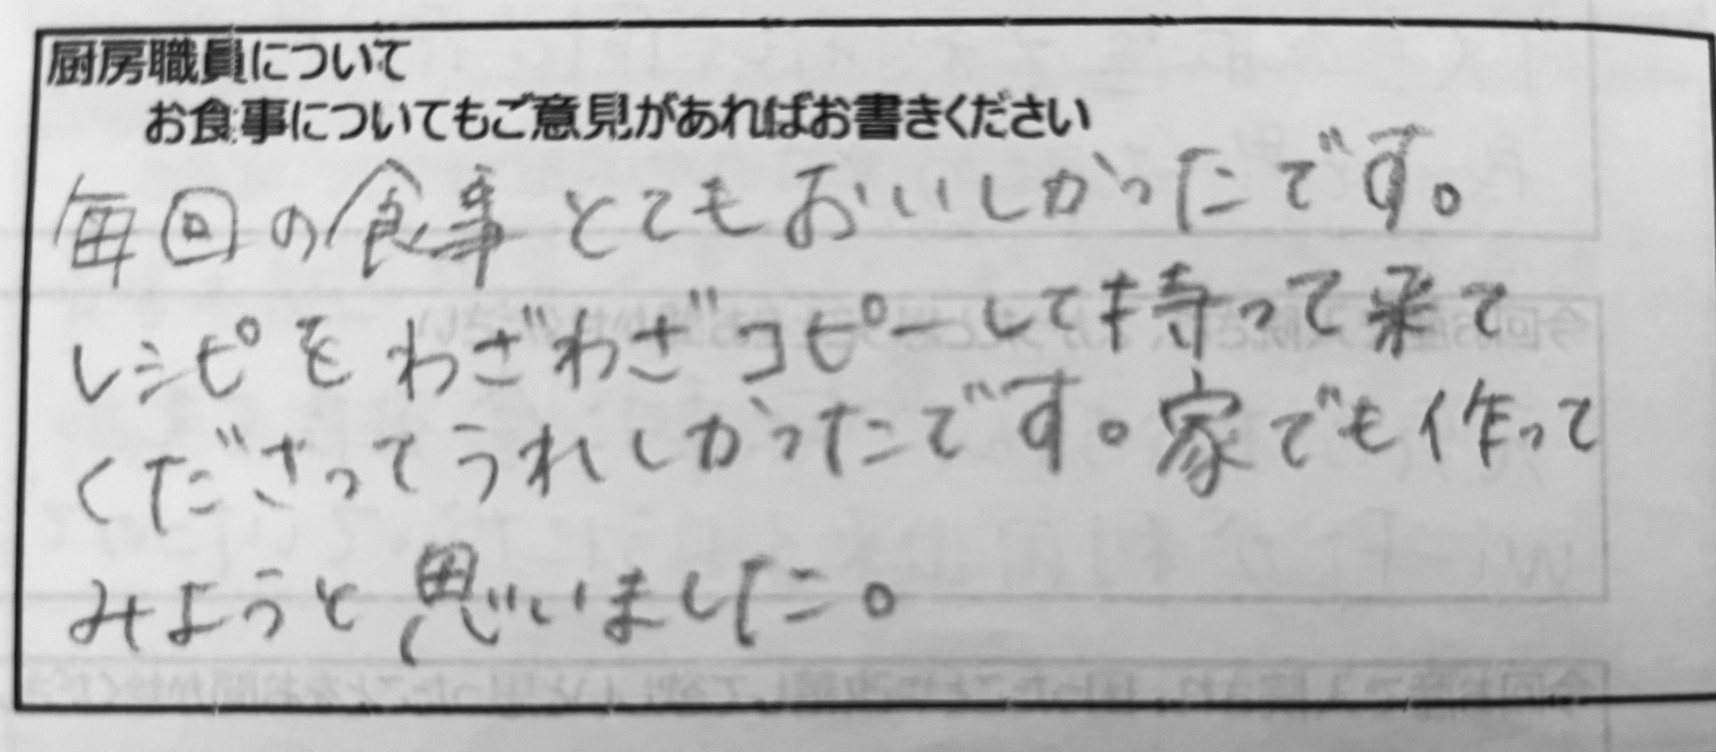 厨房職員について
お食事についてもご意見があればお書きください
毎回の食事とてもおいしかったです。
レシピをわざわざコピーしてす持って来て
くださってうれしかったです。家でも作って
みようと思いました。